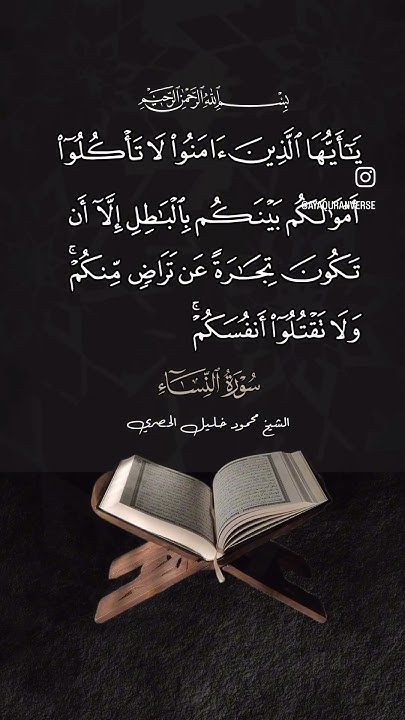 بِسْمِ ٱللَّهِ ٱلرَّحْمَٰنِ ٱلرَّحِيمِ
يَٰٓأَيُّهَا ٱلَّذِينَ ءَامَنُوا۟ لَا تَأْكُلُوٓا۟
أَمْوَٰلَكُم بَيْنَكُم بِٱلْبَٰطِلِ إِلَّآ أَن
@AYAQURANVERSE
تَكُونَ تِجَٰرَةً عَن تَرَاضٍ مِّنكُمْ ۚ
وَلَا تَقْتُلُوٓا۟ أَنفُسَكُمْ ۚ
سُورَةُ ٱلنِّسَاءِ
الشيخ محمود خليل الحصري